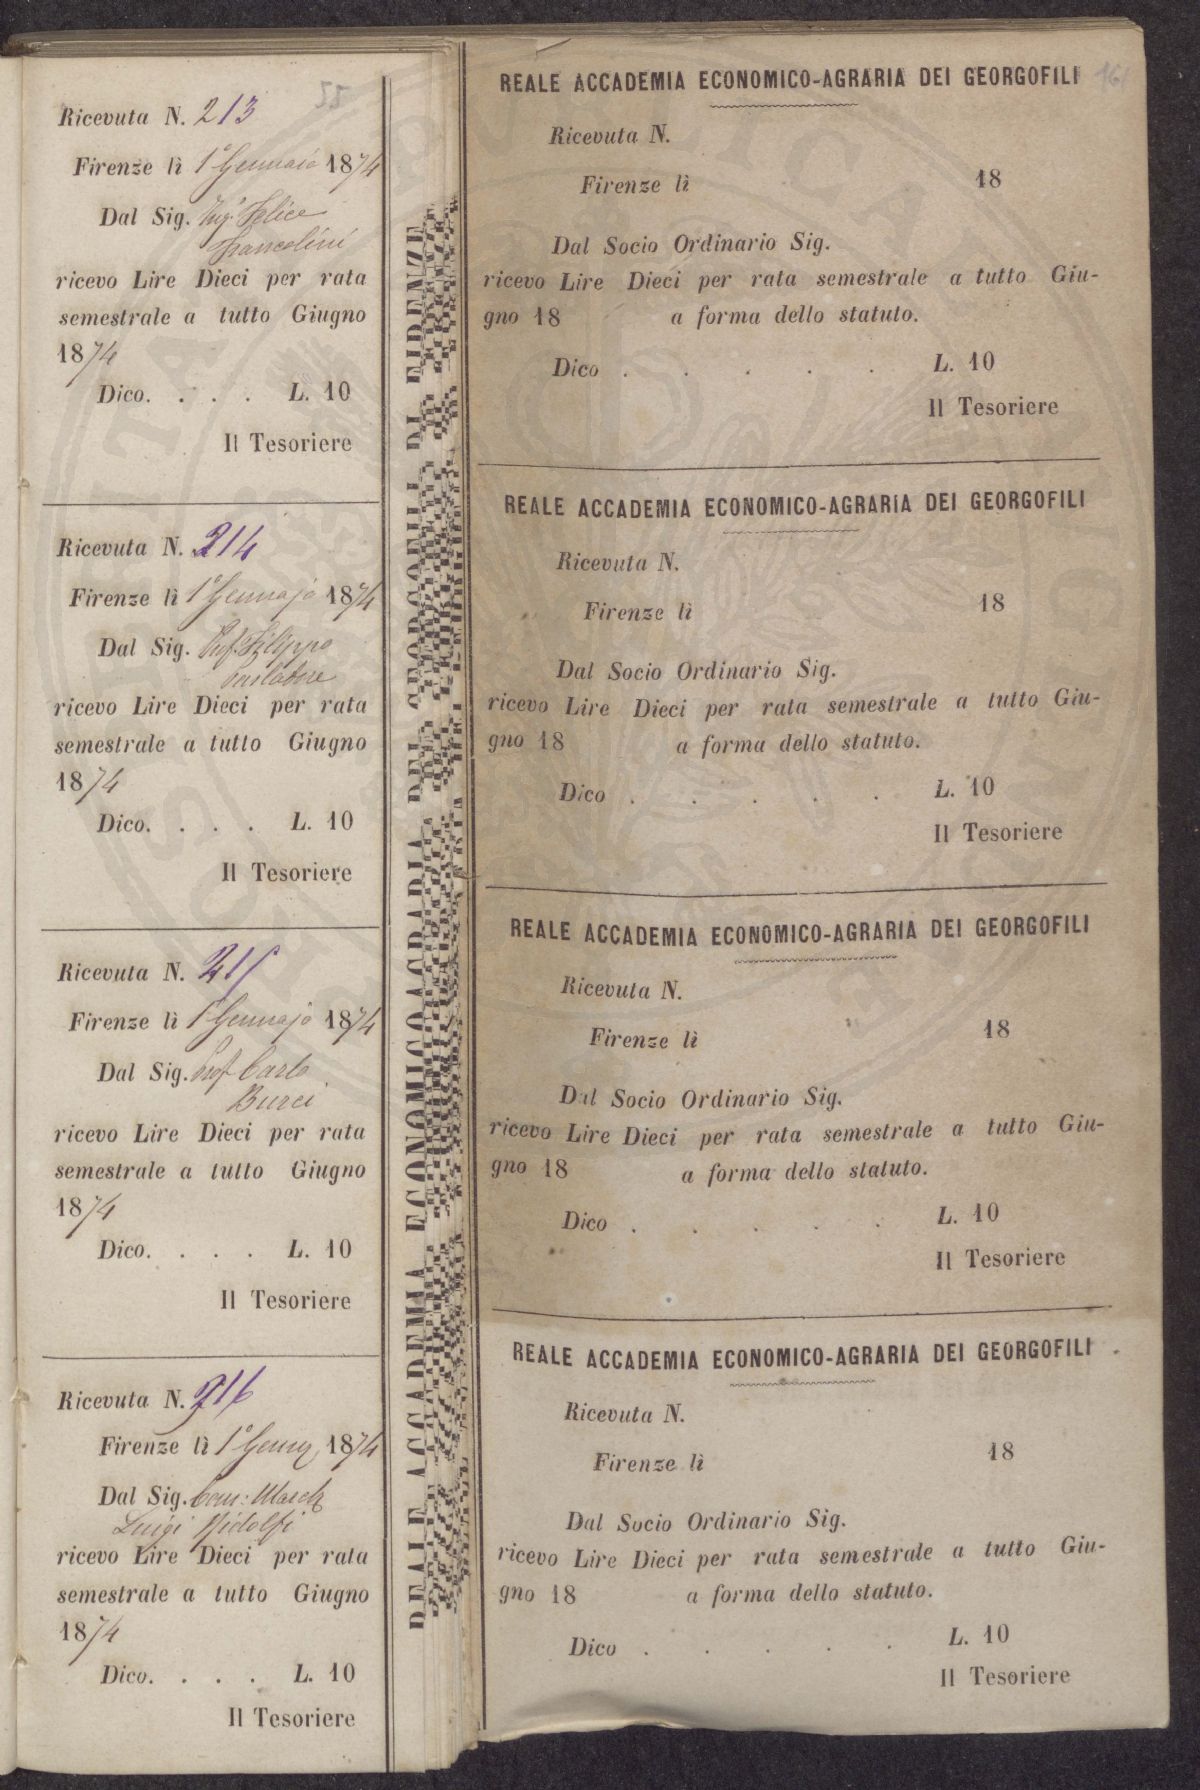 Ricevuta N. 213
Firenze lì 1° Gennaio 1874
Dal Sig. Ing.e Felice
Francolini
ricevo Lire Dieci per rata
semestrale a tutto Giugno
1874
Dico. . . . L. 10
Il Tesoriere
Ricevuta N. 214
Firenze lì 1° Gennajo 1874
Dal Sig. Prof. Filippo
Parlatore
ricevo Lire Dieci per rata
semestrale a tutto Giugno
1874
Dico. . . . L. 10
Il Tesoriere
Ricevuta N. 215
Firenze lì 1° Gennajo 1874
Dal Sig. Prof Carlo
Burci
ricevo Lire Dieci per rata
semestrale a tutto Giugno
1874
Dico. . . . L. 10
Il Tesoriere
Ricevuta N. 216
Firenze lì 1° Genn 1874
Dal Sig. Com: March
Luigi Ridolfi
ricevo Lire Dieci per rata
semestrale a tutto Giugno
1874
Dico. . . . L. 10
Il Tesoriere
REALE ACCADEMIA ECONOMICO-AGRARIA DEI GEORGOFILI DI FIRENZE
REALE ACCADEMIA ECONOMICO-AGRARIA DEI GEORGOFILI
Ricevuta N.
Firenze lì 18
Dal Socio Ordinario Sig.
ricevo Lire Dieci per rata semestrale a tutto Giu-
gno 18 a forma dello statuto.
Dico . . . . . L. 10
Il Tesoriere
REALE ACCADEMIA ECONOMICO-AGRARIA DEI GEORGOFILI
Ricevuta N.
Firenze lì 18
Dal Socio Ordinario Sig.
ricevo Lire Dieci per rata semestrale a tutto Giu-
gno 18 a forma dello statuto.
Dico . . . . . L. 10
Il Tesoriere
REALE ACCADEMIA ECONOMICO-AGRARIA DEI GEORGOFILI
Ricevuta N.
Firenze lì 18
Dal Socio Ordinario Sig.
ricevo Lire Dieci per rata semestrale a tutto Giu-
gno 18 a forma dello statuto.
Dico . . . . . L. 10
Il Tesoriere
REALE ACCADEMIA ECONOMICO-AGRARIA DEI GEORGOFILI
Ricevuta N.
Firenze lì 18
Dal Socio Ordinario Sig.
ricevo Lire Dieci per rata semestrale a tutto Giu-
gno 18 a forma dello statuto.
Dico . . . . . L. 10
Il Tesoriere